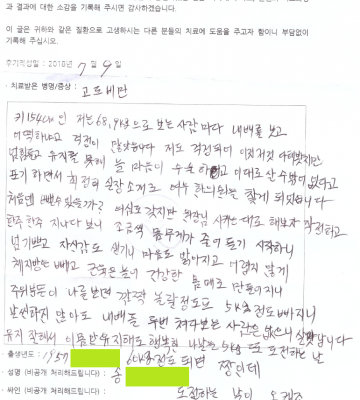 과 결과에 대한 소감을 기록해 주시면 감사하겠습니다.
이 글은 귀하와 같은 질환으로 고생하시는 다른 분들의 치료에 도움을 주고자 함이니 부담없이
기록해 주십시오.
후기작성일 : 2018년 7월 9일
· 치료받은 병명/증상 : 고도비만
키154cm인 저는 68,9kg으로 보는 사람마다 내배를 보고
걱정이 많았습니다 저도 걱정되어 이것저것 다해봤지만
힘들고 유지를 못해 늘 마음이 우울하고 이대로 살수밖에없다고
포기하면서 희정의 실장 소개로 여우 한의원을 찾게 되었습니다
처음엔 뺄수있을까? 의심도 갔지만 원장님 시키는대로 해보자 작정하고
한주 한주 지나다 보니 조금씩 몸무게가 줄어 들기 시작하니
넘 기쁘고 자신감도 생기니 마음도 밝아지고 어렵지 않게
체지방은 빼고 근육은 늘어 건강한 몸매로 만들어지니
주위분들이 나를보면 깜짝 놀랄정도로 5kg정도 빠지니
날씬하지 않아도 내배를 두번 쳐다보는 사람은 없으니 살맛납니다
유지 잘해서 이몸만유지해도 행복한 나날 또 도전하는 날
· 출생년도 : 1957 정도 되면 짱이데
· 성명 (비공개 처리해드립니다) : 송
· 싸인 (비공개 처리해드립니다) : 도전하는